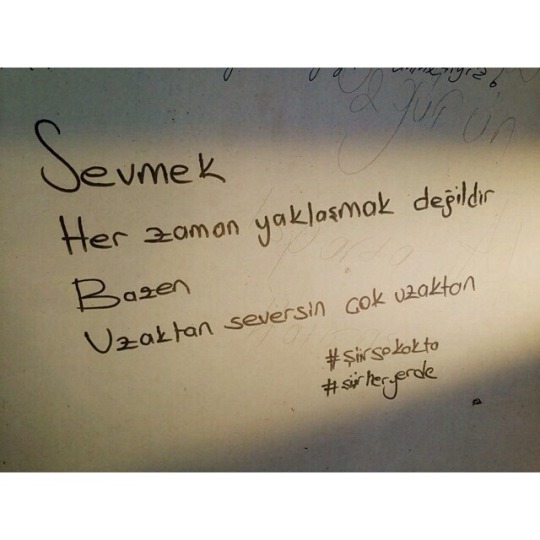 Sevmek
Her zaman yaklaşmak değildir
Bazen
Uzaktan seversin çok uzaktan
#şiirsokakta
#şiirheryerde